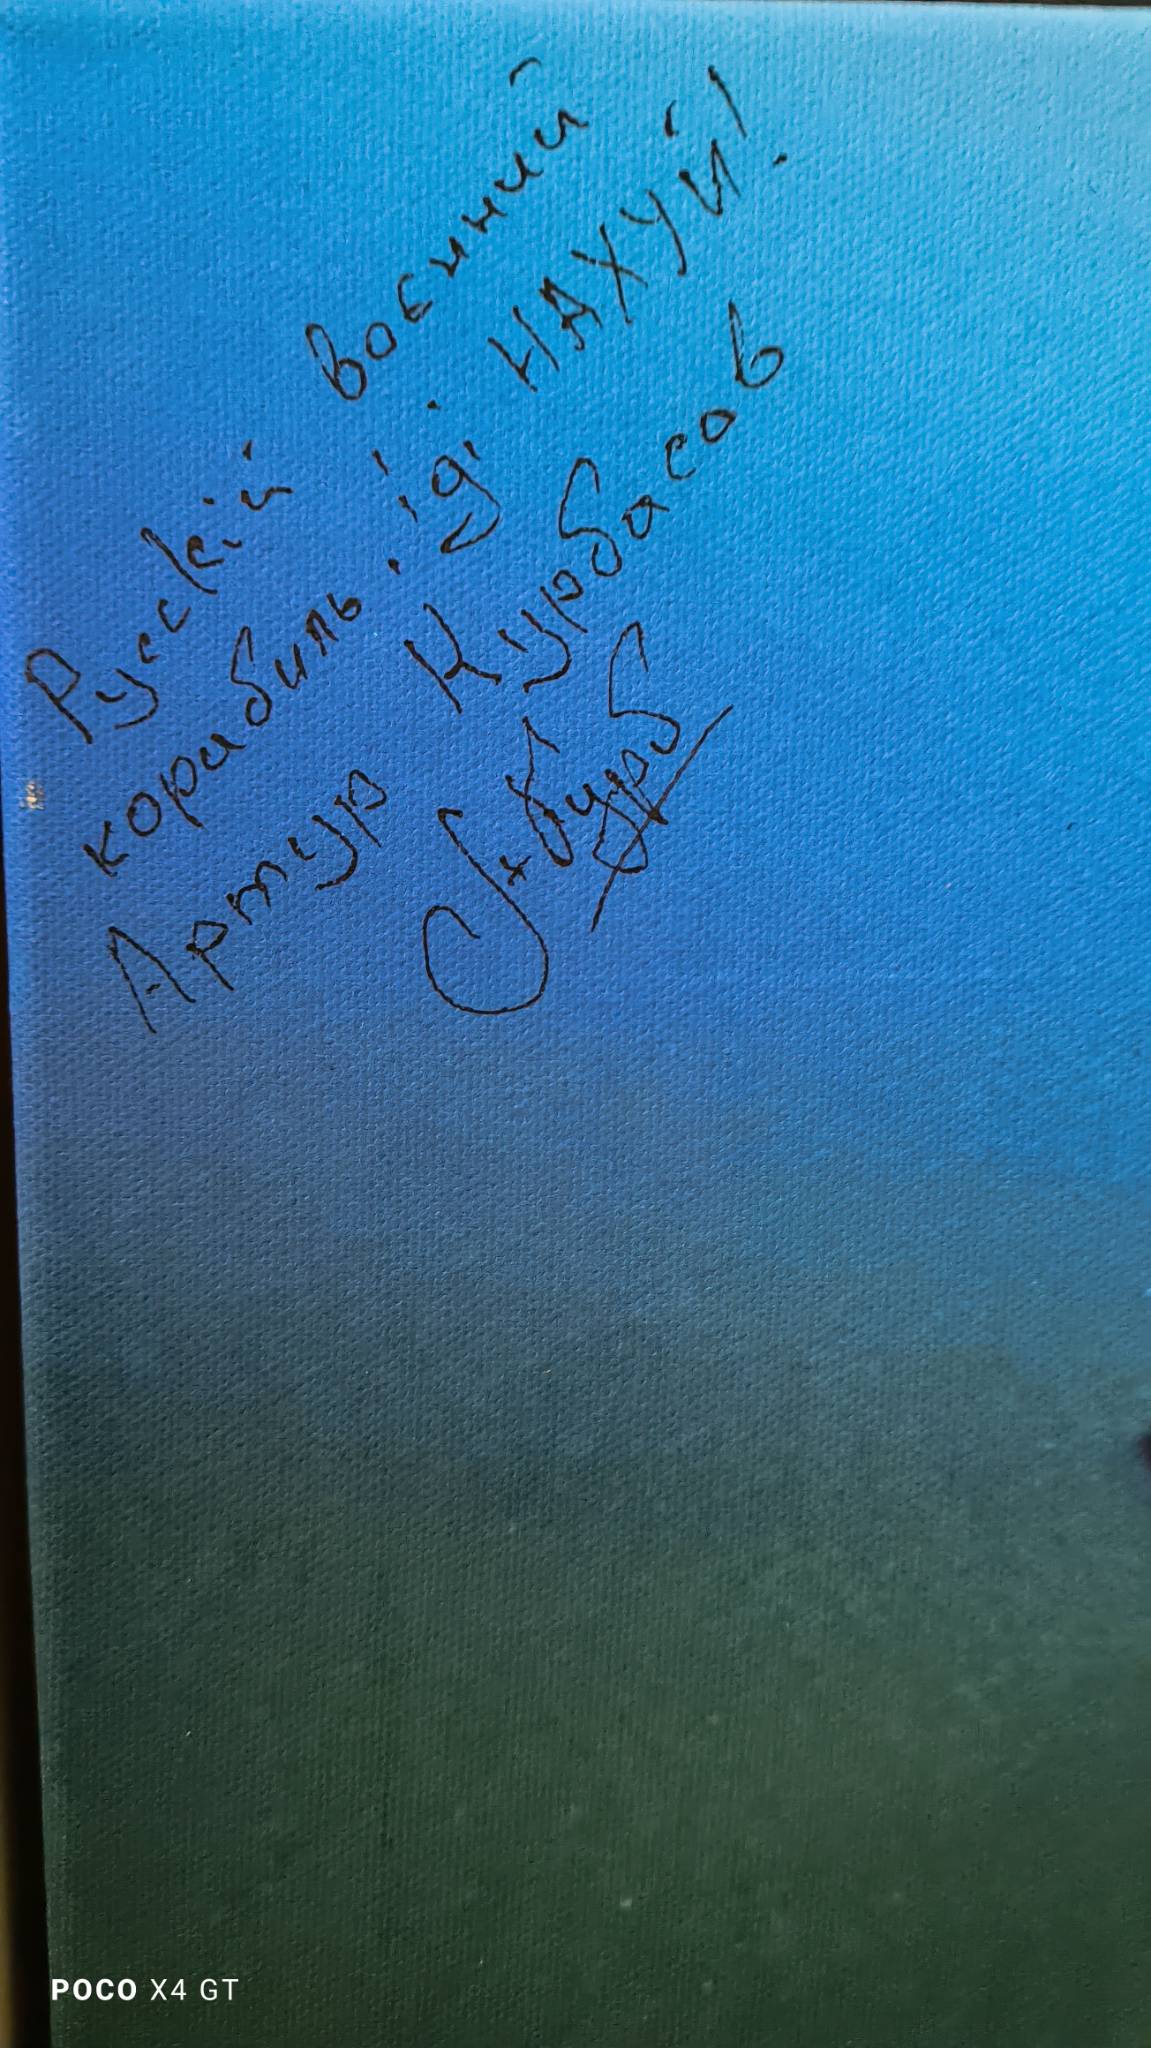 Рускій воєнний
корабиль іді НАХУЙ!
Артур Курбасов
POCO X4 GT